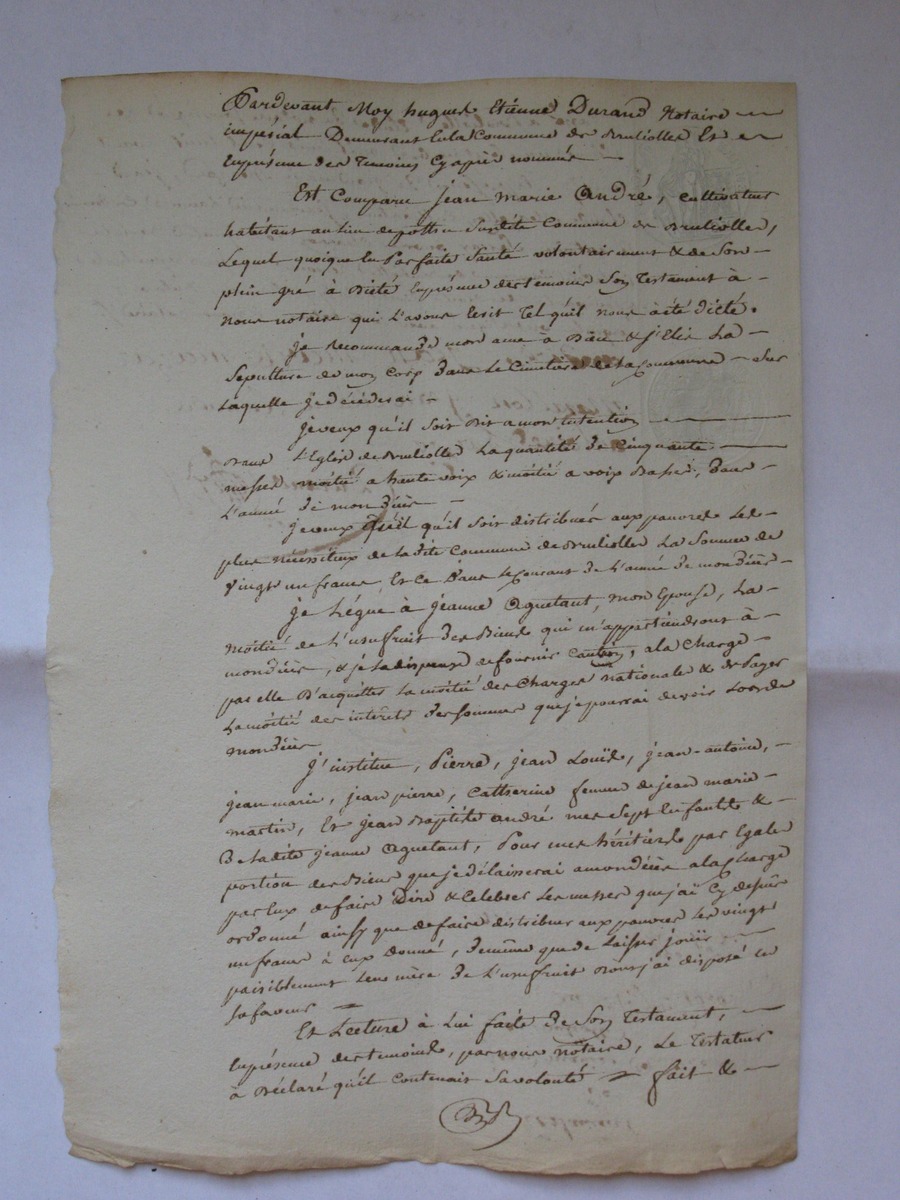 Pardevant Moy hugues Etienne Durand Notaire
impérial Demeurant En la Commune de Brulliolles Et
En présence des Temoins Cy après nommés
Est Comparu jean marie André, cultivateur
habitant au lieu de susdite Commune de Brulliolles,
Lequel quoique En Parfaite Santé volontairement & de Son
plein gré à Dicté En présence des temoins Son Testament à
nous notaire qui L'avons Ecrit Tel qu'il nous a été dicté.
je Recommande mon ame à Dieu & j'Elis La
Sepulture de mon Corp Dans Le Cimetière de la Commune Sur
Laquelle je décéderai
je veux qu'il soit Dit a mon intention
Dans L'Eglise de Brulliolles La quantité de Cinquante
messes moitié a haute voix & moitié a voix Basse, Dans
L'année de mon décès
je veux qu'il soit distribués aux pauvres Les
plus nécessiteux de La dite Commune de Brulliolles La Somme de
vingt un francs Et ce Dans Le Courant de L'année de mon décès
je Légue à jeanne Aguetant, mon Epouse, La
moitié de L'usufruit des Biens qui m'appartiendront à
mon décès, & je la dispense de fournir Caution, a la Charge
par elle D'acquitter La moitié des Charges nationales & de Payer
La moitié des intérets des sommes que je pourrai devoir Lors de
mon décès
j'institue, Pierre, jean Louïs, jean-antoine,
jean marie, jean pierre, Catherine femme de jean marie
martin, Et jean Baptiste andré mes Sept Enfants &
De la dite jeanne Aguetant, Pour mes héritiers par Egale
portion des Biens que je délaisserai a mon décès a la Charge
par Eux de faire Dire & Celebrer Les messes que j'ai Cy dessus
ordonné ainsy que de faire distribuer aux pauvres Les vingt
un francs à Eux donné, de même que de Laisser jouir
paisiblement Leur mère de L'usufruit Dont j'ai disposé En
sa faveur
Et Lecture à Lui faite de Son Testament,
En présence des temoins, par nous notaire, Le Testateur
à Déclaré qu'il Contenait Sa volonté fait &